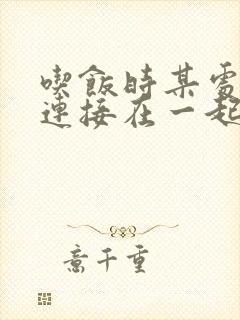 喫飯時某處
連接在一起
意千重